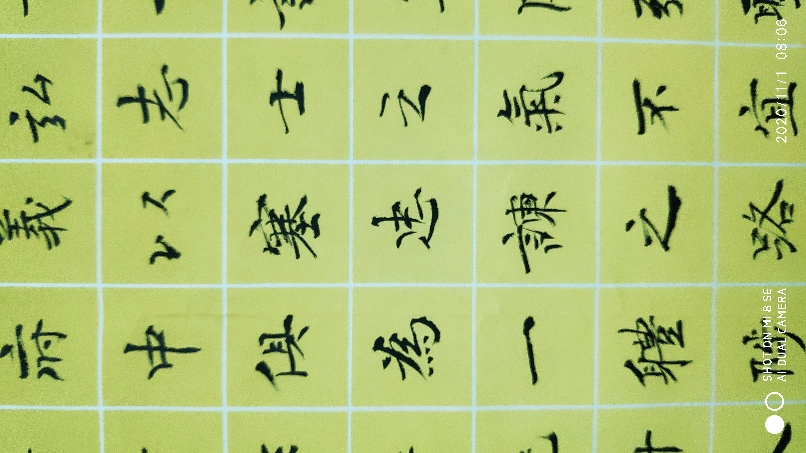 弘志士之氣不宜
義以塞忠諫之路
府中俱為一體陟
SHOT ON MI 8 SE
AI DUAL CAMERA
2020/11/1 08:06